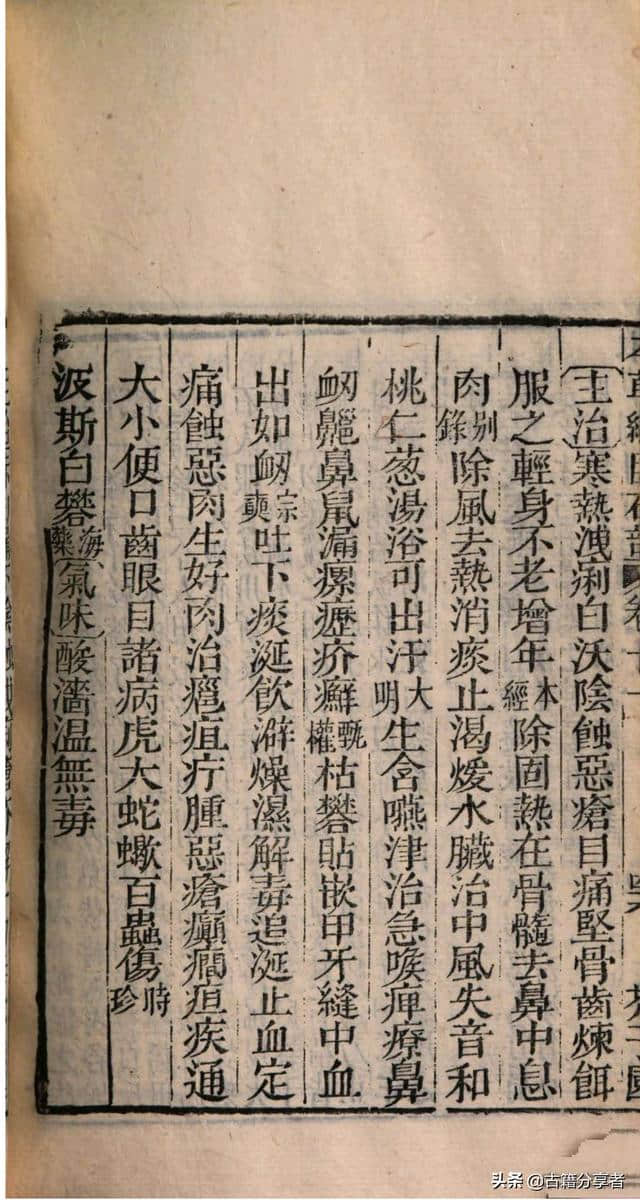 本草綱目石部 卷十一 芥子園
主治寒熱洩痢白沃陰蝕惡瘡目痛堅骨齒煉餌
服之輕身不老增年本經除固熱在骨髓去鼻中息
肉別錄除風去熱消痰止渴煖水臟治中風失音和
桃仁葱湯浴可出汗大明生含嚥津治急喉痺療鼻
衂齆鼻鼠漏瘰癧疥癬甄權枯礬貼嵌甲牙縫中血
出如衂宗奭吐下痰涎飲澼燥濕解毒追涎止血定
痛蝕惡肉生好肉治癰疽疔腫惡瘡癲癇疸疾通
大小便口齒眼目諸病虎犬蛇蠍百蟲傷時珍
波斯白礬海藥氣味酸濇温無毒
头条 @古籍分享者